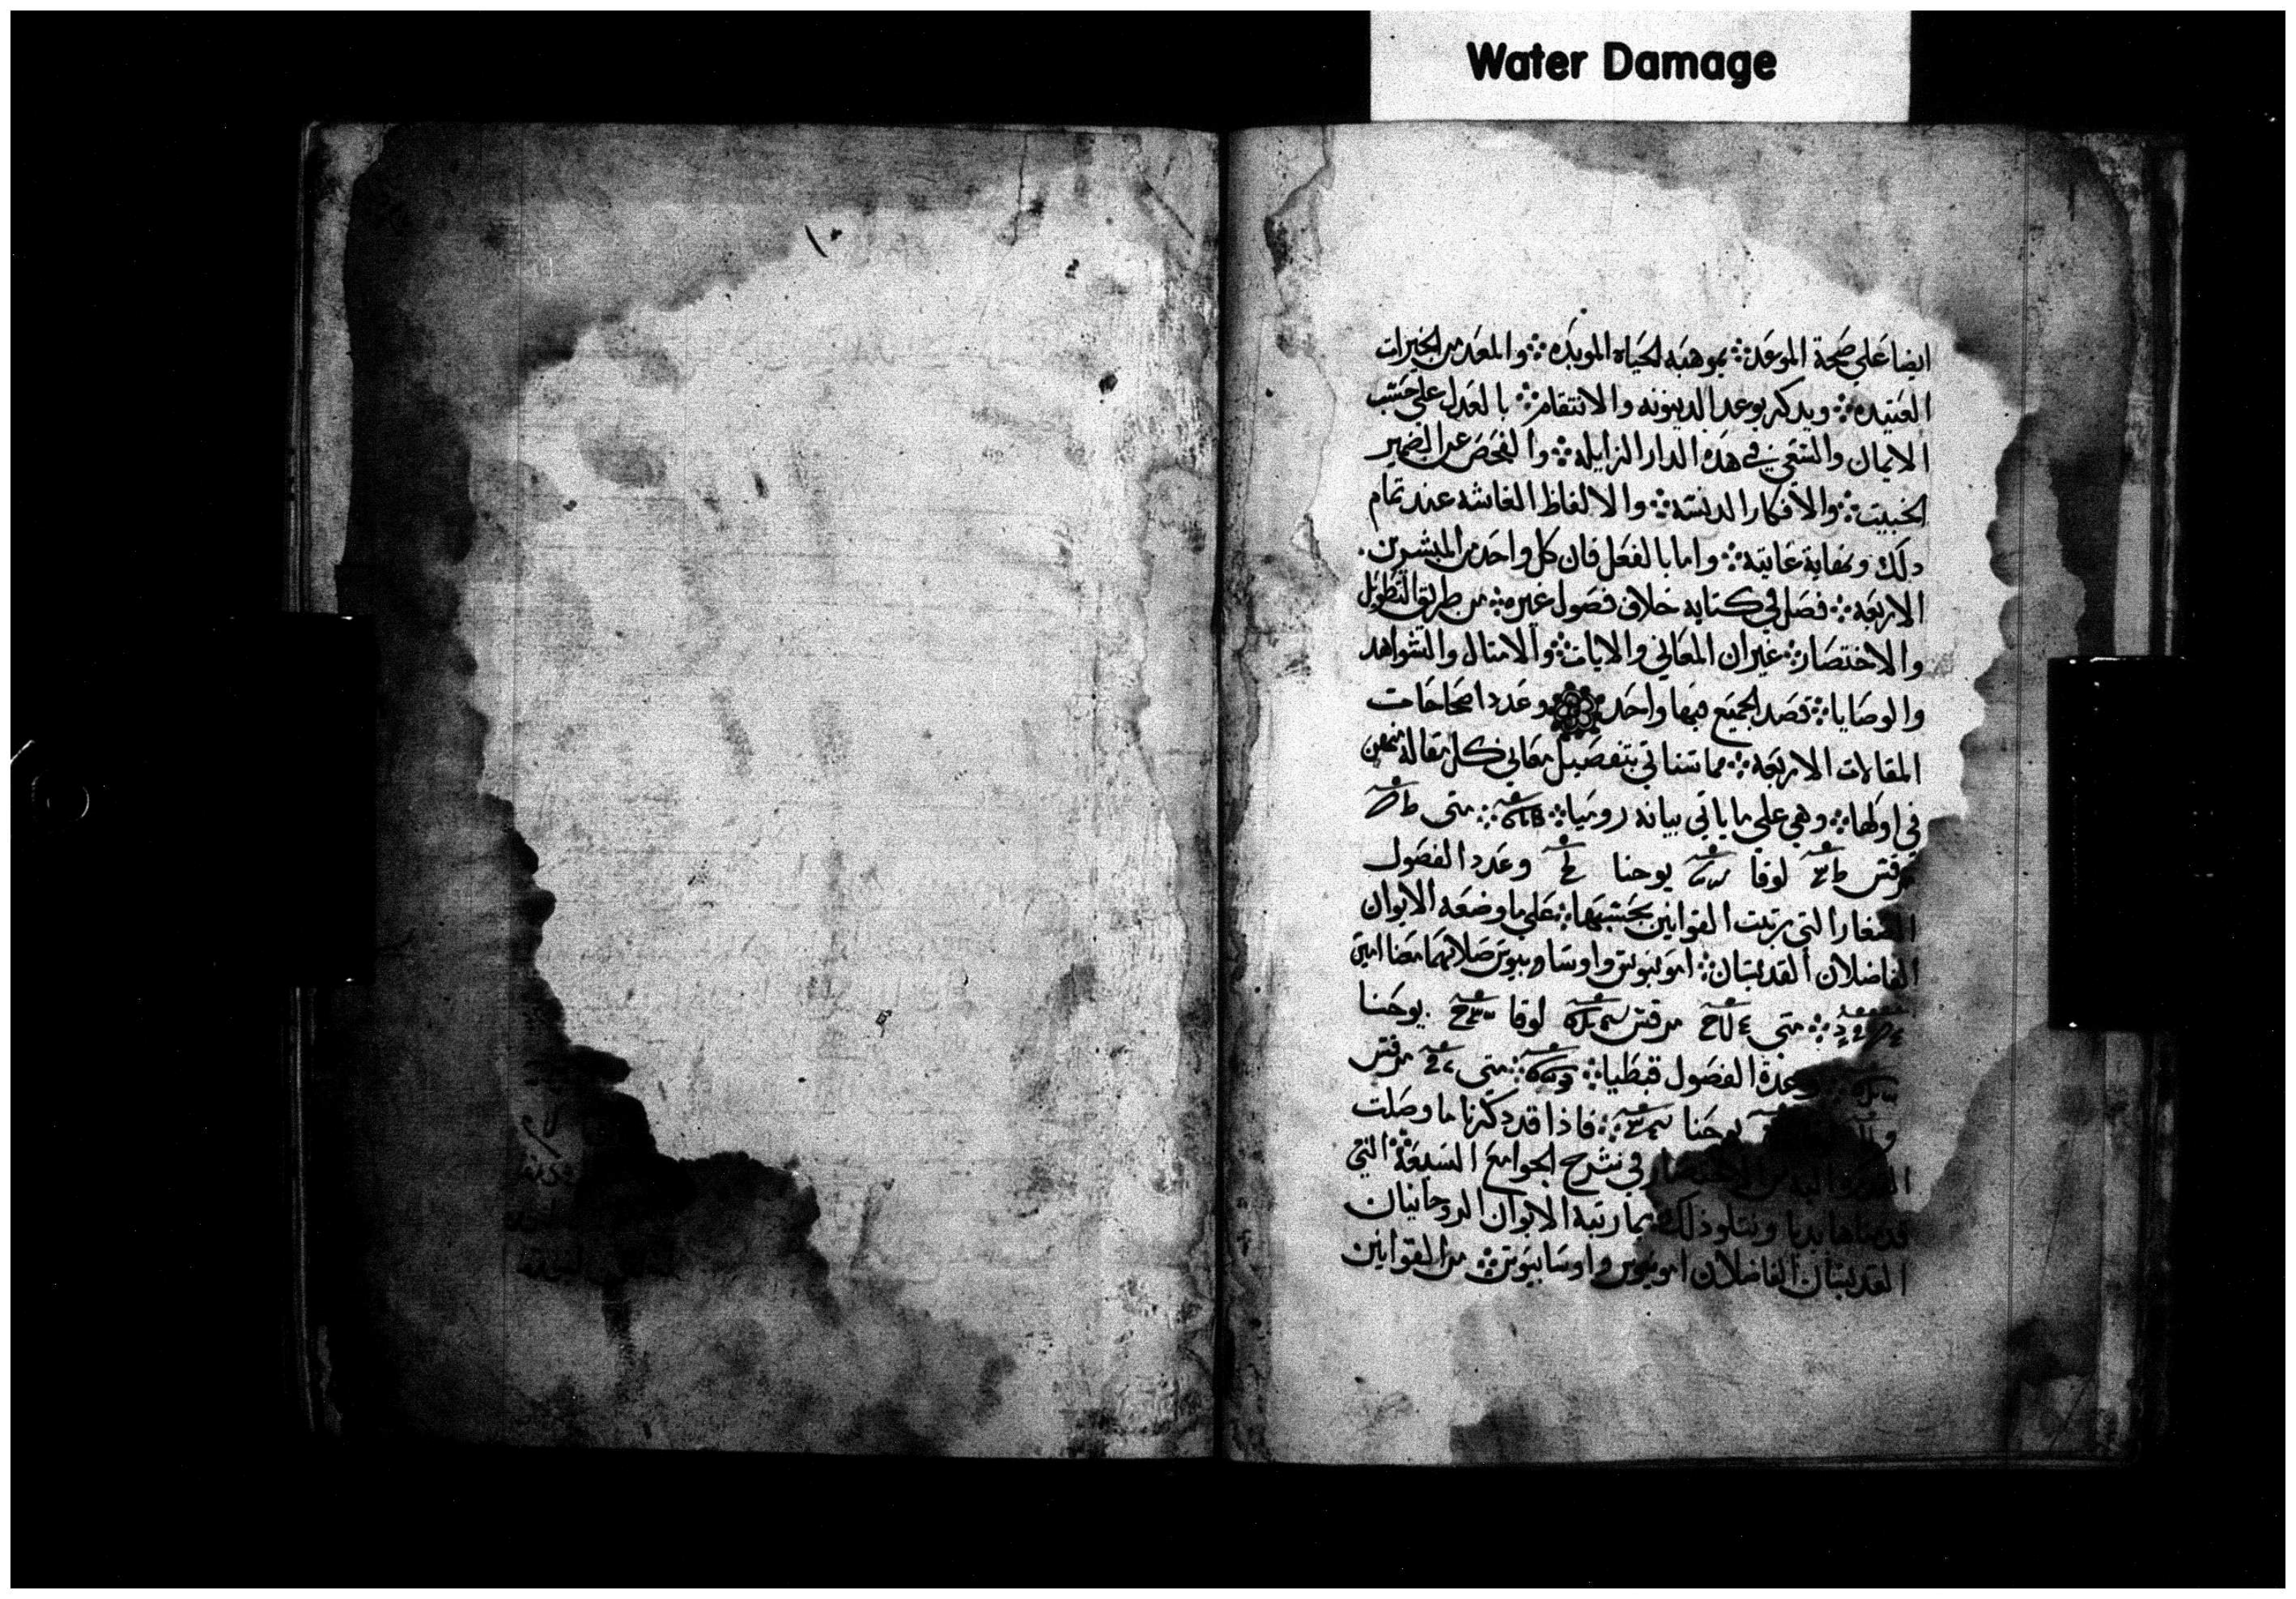 Water Damage
ايضا علي صحة الموعد ܀ بموهبه الحياه الموبده ܀ والمعد من الخيرات
العتيده ܀ ويدكر بوعد الدينونه والانتقام ܀ بالعدل علي حسب
الايمان والسعي في هذه الدار الزايله ܀ والفحص عن الضمير
الخبيت ܀ والافكار الدنسه ܀ والالفاظ الغاشه عند تمام
دلك ونهاية غايته ܀ واما بالفعل فان كل واحد من المبشرين
الاربعه ܀ فصل في كتابه خلاف فصول غيره ܀ من طريق التطويل
والاختصار ܀ غير ان المعاني والايات ܀ والامتال والشواهد
والوصايا ܀ قصد الجميع فيها واحد ܀ وعدد اصحاحات
المقالات الاربعه ܀ مما سناتي بتفصيل معاني كل مقاله منهن
في اولها ܀ وهي علي ما ياتي بيانه روميا ܀ متى
مرقس لوقا يوحنا وعدد الفصول
الصغار التي رتبت القوانين بحسبها ܀ علي ما وضعه الابوان
الفاضلان القديسان ܀ امونيوس واوسابيوس صلاتهما معنا امين
متى مرقس لوقا يوحنا
وعدة الفصول قبطيا ܀ متى مرقس
يوحنا ܀ فاذا قد دكرنا ما وصلت
في شرح الجوامع السبعة التي
ونتلو ذلك بما رتبه الابوان الروحانيان
القديسان الفاضلان امونيوس واوسابيوس ܀ من القوانين